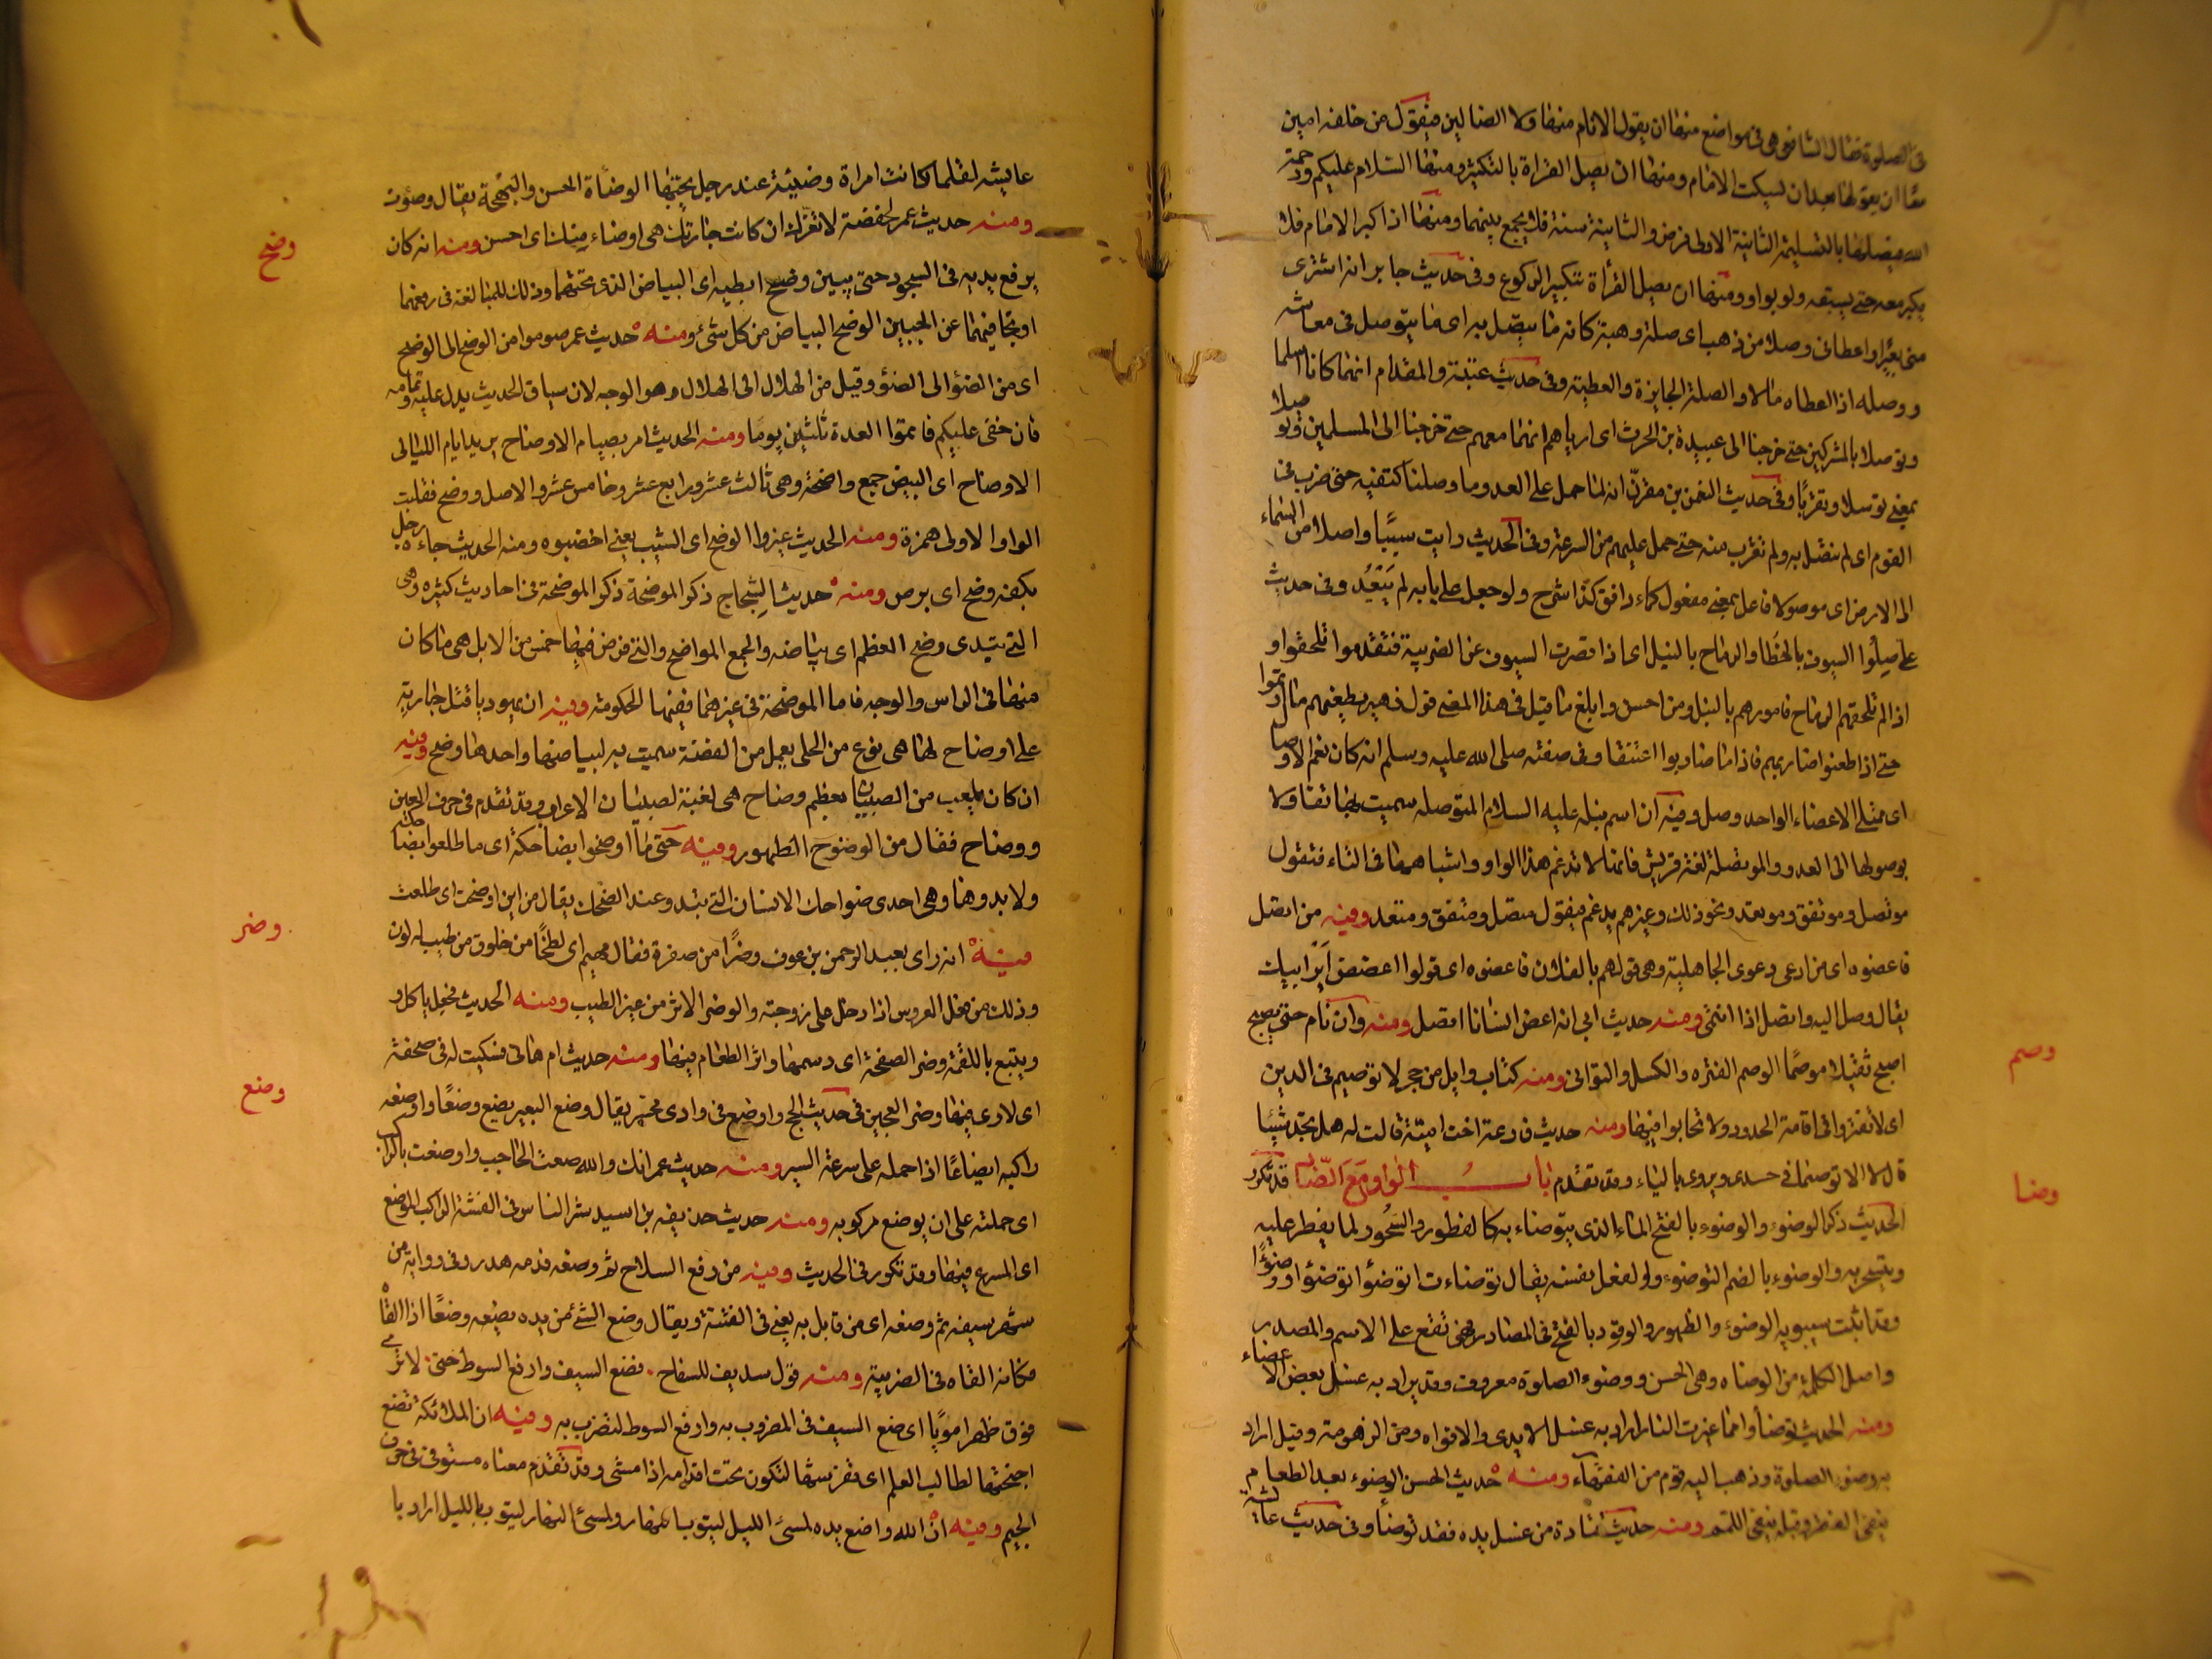 فى الصلوة فقال الشافعى هى فى مواضع منها ان يقول الامام منها ولا الضالين فيقول من خلفه امين
معا ان يقولها بعد ان يسكت الامام ومنها ان يصل القراة بالتكبير ومنها السلام عليكم ورحمة
الله فيصلها بالتسليمة الثانية الاولى فرض والثانية سنة فلا يجمع بينهما ومنها اذا كبر الامام فلا
يكبر معه حتى يسبقه ولو بواو ومنها ان يصل القرأة بتكبير الركوع وفى حديث جابر انه اشترى
منى بعيرا واعطانى وصلا من ذهب اى صلة وهبة كانه ما يتصل به اى ما يتوصل فى معاشه
ووصله اذا اعطاه مالا والصلة الجايزة والعطية وفى حديث عتبة والمقدام انهما كانا اسلما
وتوصلا بالمشركين حتى خرجنا الى عبيدة بن الحرث اى ارياهم انهما معهم حتى خرجنا الى المسلمين وتوصلا
بمعنى توسلا وتقربا وفى حديث النعمن بن مقرن انه لما حمل على العدو ما وصلنا كتفيه حتى ضرب فى
القوم اى لم نتصل به ولم نقرب منه حتى حمل عليهم من السرعة وفى الحديث رايت سببا واصلا من السماء
الى الارض اى موصولا فاعل بمعنى مفعول كماء دافق كذا شرح ولو جعل على بابه لم يبعد وفى حديث
على صلوا السيوف بالخطا والرماح بالنبل اى اذا قصرت السيوف عن الضريبة فتقدموا تلحقوا و
اذا لم تلحقهم الرماح فارموهم بالنبل ومن احسن وابلغ ما قيل فى هذا المعنى قول زهير يطعنهم ما ارتموا
حتى اذا طعنوا ضاربهم فاذا ما ضاربوا اعتنقا وفى صفته صلى الله عليه وسلم انه كان فعم الاوصال
اى ممتلى الاعضاء الواحد وصل وفيه ان اسم نبله عليه السلام المتوصله سميت بها تفاولا
بوصولها الى العدو والموتصلة لغة قريش فانها لا تدغم هذا الواو واشباهها فى التاء فتقول
موتصل وموتفق وموتعد ونحو ذلك وغيرهم يدغم فيقول متصل ومتفق ومتعد وفيه من اتصل
فاعضوه اى من ادعى دعوى الجاهلية وهى قولهم يا لفلان فاعضوه اى قولوا اعضض اير ابيك
يقال وصل اليه واتصل اذا انتمى ومنه حديث ابى انه اعض انسانا اتصل ومنه وان نام حتى يصبح
اصبح ثقيلا موصما الوصم الفتره والكسل والتوانى ومنه كتاب وايل من حجر لا توصيم فى الدين
اى لا تفتروا فى اقامة الحدود ولا تحابوا فيها ومنه حديث فارعة اخت امية قالت له هل تجد شيئا
قال لا الا توصيما فى جسدى ويروى بالباء وقد تقدم باب الواو مع الضاد قد تكرر
الحديث ذكر الوضوء والوضوء بالفتح الماء الذى يتوضاء به كالفطور والسحور لما يفطر عليه
ويتسحر به والوضوء بالضم التوضوء والفعل نفسه يقال توضاءت اتوضؤا توضؤا ووضوءا
وقد اثبت سيبويه الوضوء والطهور والوقود بالفتح فى المصادر فهى تقع على الاسم والمصدر
واصل الكلمة من الوضاه وهى الحسن ووضوء الصلوة معروف وقد يراد به غسل بعض الاعضاء
ومنه الحديث توضأوا مما غيرت النار اراد به غسل الايدى والافواه ومن الزهومة وقيل اراد
به وضوء الصلوة وذهب اليه قوم من الفقهاء ومنه حديث الحسن الوضوء بعد الطعام
ينفى الفقر وقبله ينفى اللمم ومنه حديث قتادة من غسل يده فقد توضأ وفى حديث عايشة
وصم
وضا
عايشه لقلما كانت امراة وضيئة عند رجل يحبها الوضأة الحسن والبهجة يقال وضؤت
ومنه حديث عمر لحفصة لا تغرك ان كانت جارتك هى اوضاء منك اى احسن ومنه انه كان
يرفع يديه فى السجود حتى يبين وضح ابطيه اى البياض الذى تحتهما وذلك للمبالغة فى رفعهما
او تجافيهما عن الجبين الوضح البياض من كل شئ ومنه حديث عمر صوموا من الوضح الى الوضح
اى من الضؤ الى الضؤ وقيل من الهلال الى الهلال وهو الوجه لان سياق الحديث يدل عليه وتمامه
فان خفى عليكم فاتموا العدة ثلثين يوما ومنه الحديث امر بصيام الاوضاح يريد ايام الليالى
الاوضاح اى البيض جمع واضحة وهى ثالث عشر ورابع عشر وخامس عشر والاصل ووضح فقلبت
الواو الاولى همزة ومنه الحديث غيروا الوضح اى الشيب يعنى اخضبوه ومنه الحديث جاءه رجل
بكفه وضح اى برص ومنه حديث الشجاج ذكر الموضحة ذكر الموضحة فى احاديث كثيره وهى
التى تبدى وضح العظم اى بياضه والجمع المواضح والتى فرض فيها خمس من الابل هى ما كان
منها فى الراس والوجه فاما الموضحة فى غيرهما ففيها الحكومة وفيه ان يهوديا قتل جارية
على اوضاح لها هى نوع من الحلى يعمل من الفضة سميت به لبياضها واحدها وضح وفيه
ان كان يلعب من الصبيان بعظم وضاح هى لعبة لصبيان الاعراب وقد تقدم فى حرف العين
ووضاح فقال من الوضوح الظهور وفيه حتى ما اوضحوا بضاحكة اى ما طلعوا بضاحكة
ولا بدوها وهى احدى ضواحك الانسان التى تبدو عند الضحك يقال من اين اوضحت اى طلعت
فيه انه راى بعبد الرحمن بن عوف وضرا من صفرة فقال مهيم اى لطخا من خلوق من طيب له لون
وذلك من فعل العروس اذا دخل على زوجته والوضر الاثر من غير الطيب ومنه الحديث فجعل ياكل و
ويتبع باللقمة وضر الصحفة اى دسمها واثر الطعام فيها ومنه حديث ام هانى فسكبت له فى صحفة
اى لارى فيها وضر العجين فى حديث الحج واوضع فى وادى محسر يقال وضع البعير يضع وضعا واوضعه
راكبه ايضاعا اذا حمله على سرعة السير ومنه حديث عمر انك والله صعت الحاجب واوضعت بالراكب
اى حملته على ان يوضع مركوبه ومنه حديث حذيفه بن اسيد شر الناس فى الفتنة الراكب الموضع
اى المسرع فيها وقد تكرر فى الحديث وفيه من رفع السلاح ثم وضعه فدمه هدر وفى رواية من
شهر سيفه ثم وضعه اى من قاتل به يعنى فى الفتنة ويقال وضع الشئ من يده يضعه وضعا اذا القاه
مكانه القاه فى الضريبة ومنه قول سديف للسفاح فضع السيف وارفع السوط حتى لا ترى
فوق ظهرها امويا اى ضع السيف فى المضروب به وارفع السوط لتضرب به وفيه ان الملائكة تضع
اجنحتها لطالب العلم اى تفرشها لتكون تحت اقدامه اذا مشى وقد تقدم معناه مستوفى فى حرف
الجيم وفيه ان الله واضع يده لمسئ الليل ليتوب بالنهار ولمسئ النهار ليتوب بالليل اراد با
وضح
وضر
وضع